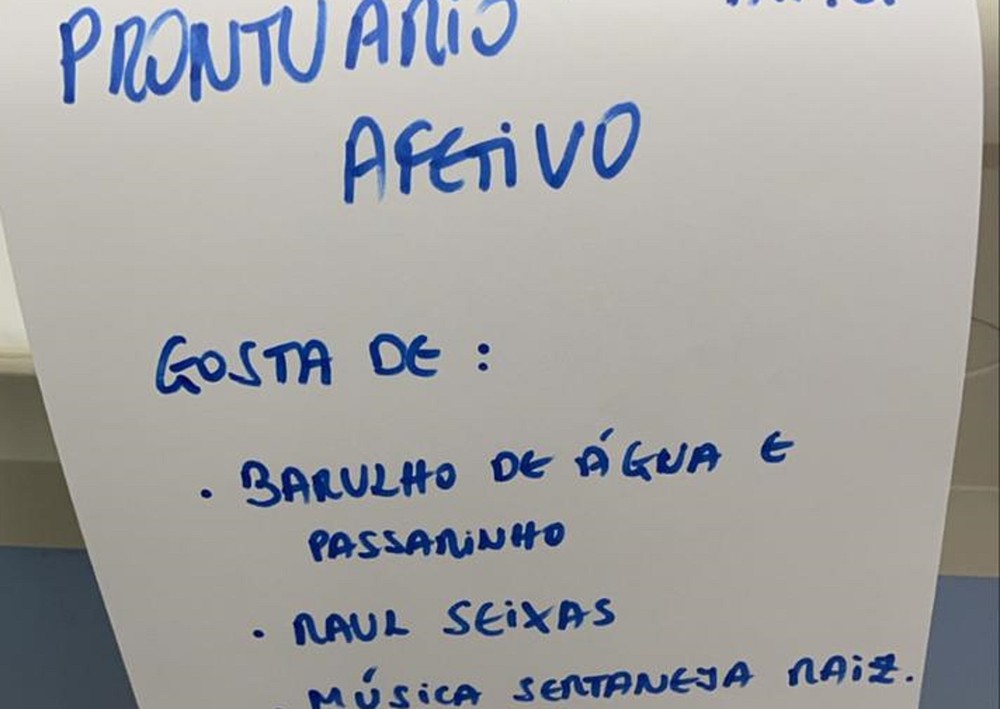 PRONTUÁRIO
AFETIVO
GOSTA DE :
· BARULHO DE ÁGUA E
PASSARINHO
· RAUL SEIXAS
· MÚSICA SERTANEJA RAIZ.